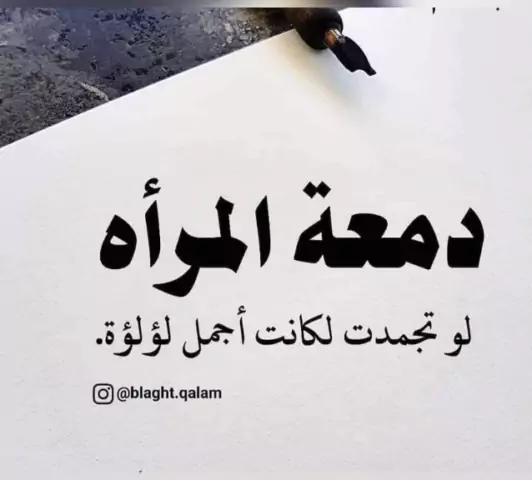 دمعة المرأه
لو تجمدت لكانت أجمل لؤلؤة.
@blaght.qalam